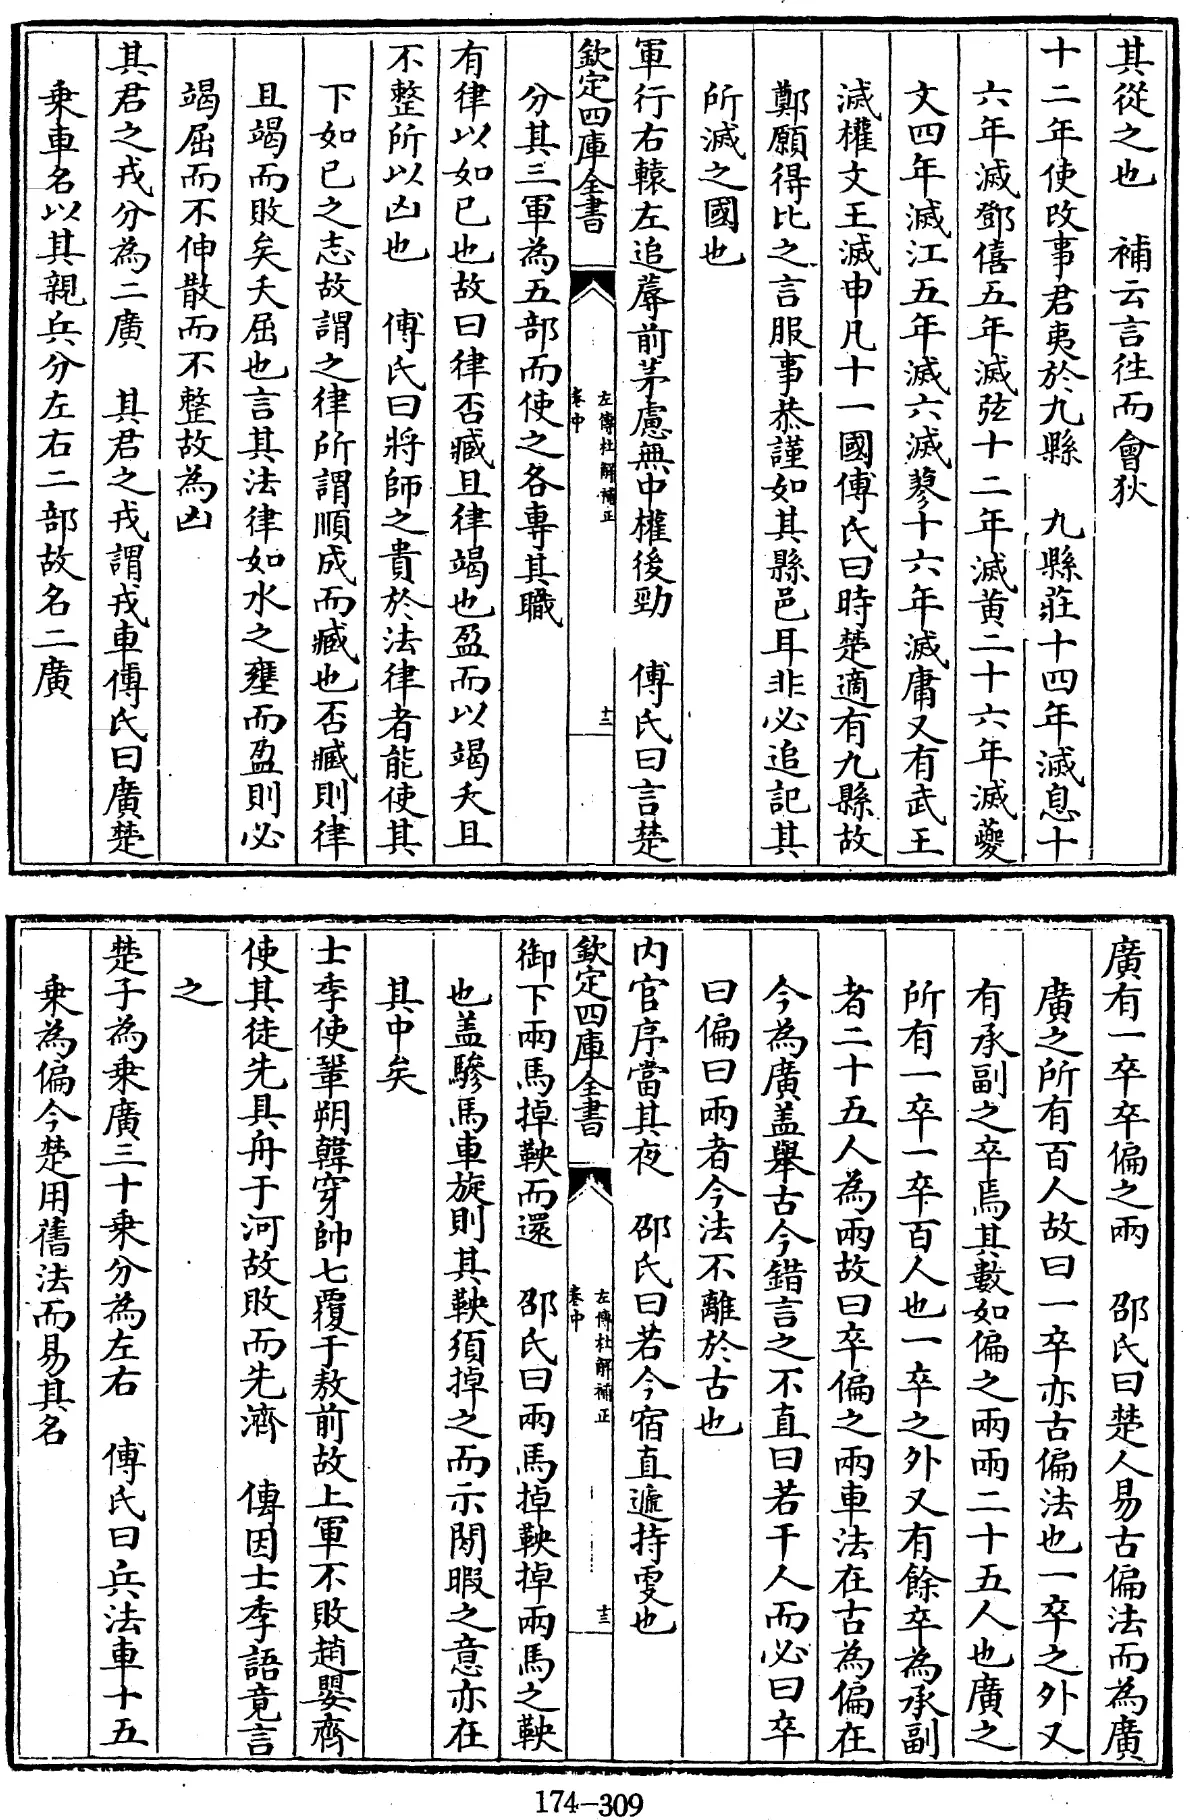 其從之也　補云言往而會狄
十二年使改事君夷於九縣　九縣莊十四年滅息十
六年滅鄧僖五年滅弦十二年滅黄二十六年滅夔
文四年滅江五年滅六滅蓼十六年滅庸又有武王
滅權文王滅申凡十一國傅氏曰時楚適有九縣故
鄭願得比之言服事恭謹如其縣邑耳非必追記其
所滅之國也
軍行右轅左追蓐前茅慮無中權後勁　傅氏曰言楚
欽定四庫全書
左傳杜解補正
卷中
十二
分其三軍為五部而使之各專其職
有律以如已也故曰律否臧且律竭也盈而以竭夭且
不整所以凶也　傅氏曰將師之貴於法律者能使其
下如已之志故謂之律所謂順成而臧也否臧則律
且竭而敗矣夭屈也言其法律如水之壅而盈則必
竭屈而不伸散而不整故為凶
其君之戎分為二廣　其君之戎謂戎車傅氏曰廣楚
乘車名以其親兵分左右二部故名二廣
廣有一卒卒偏之兩　邵氏曰楚人易古偏法而為廣
廣之所有百人故曰一卒亦古偏法也一卒之外又
有承副之卒焉其數如偏之兩兩二十五人也廣之
所有一卒一卒百人也一卒之外又有餘卒為承副
者二十五人為兩故曰卒偏之兩車法在古為偏在
今為廣盖舉古今錯言之不直曰若干人而必曰卒
曰偏曰兩者今法不離於古也
内官序當其夜　邵氏曰若今宿直遞持更也
欽定四庫全書
左傳杜解補正
卷中
十三
御下兩馬掉鞅而還　邵氏曰兩馬掉鞅掉兩馬之鞅
也盖驂馬車旋則其鞅須掉之而示閒暇之意亦在
其中矣
士季使鞏朔韓穿帥七覆于敖前故上軍不敗趙嬰齊
使其徒先具舟于河故敗而先濟　傳因士季語竟言
之
楚子為乘廣三十乘分為左右　傅氏曰兵法車十五
乘為偏今楚用舊法而易其名
174-309